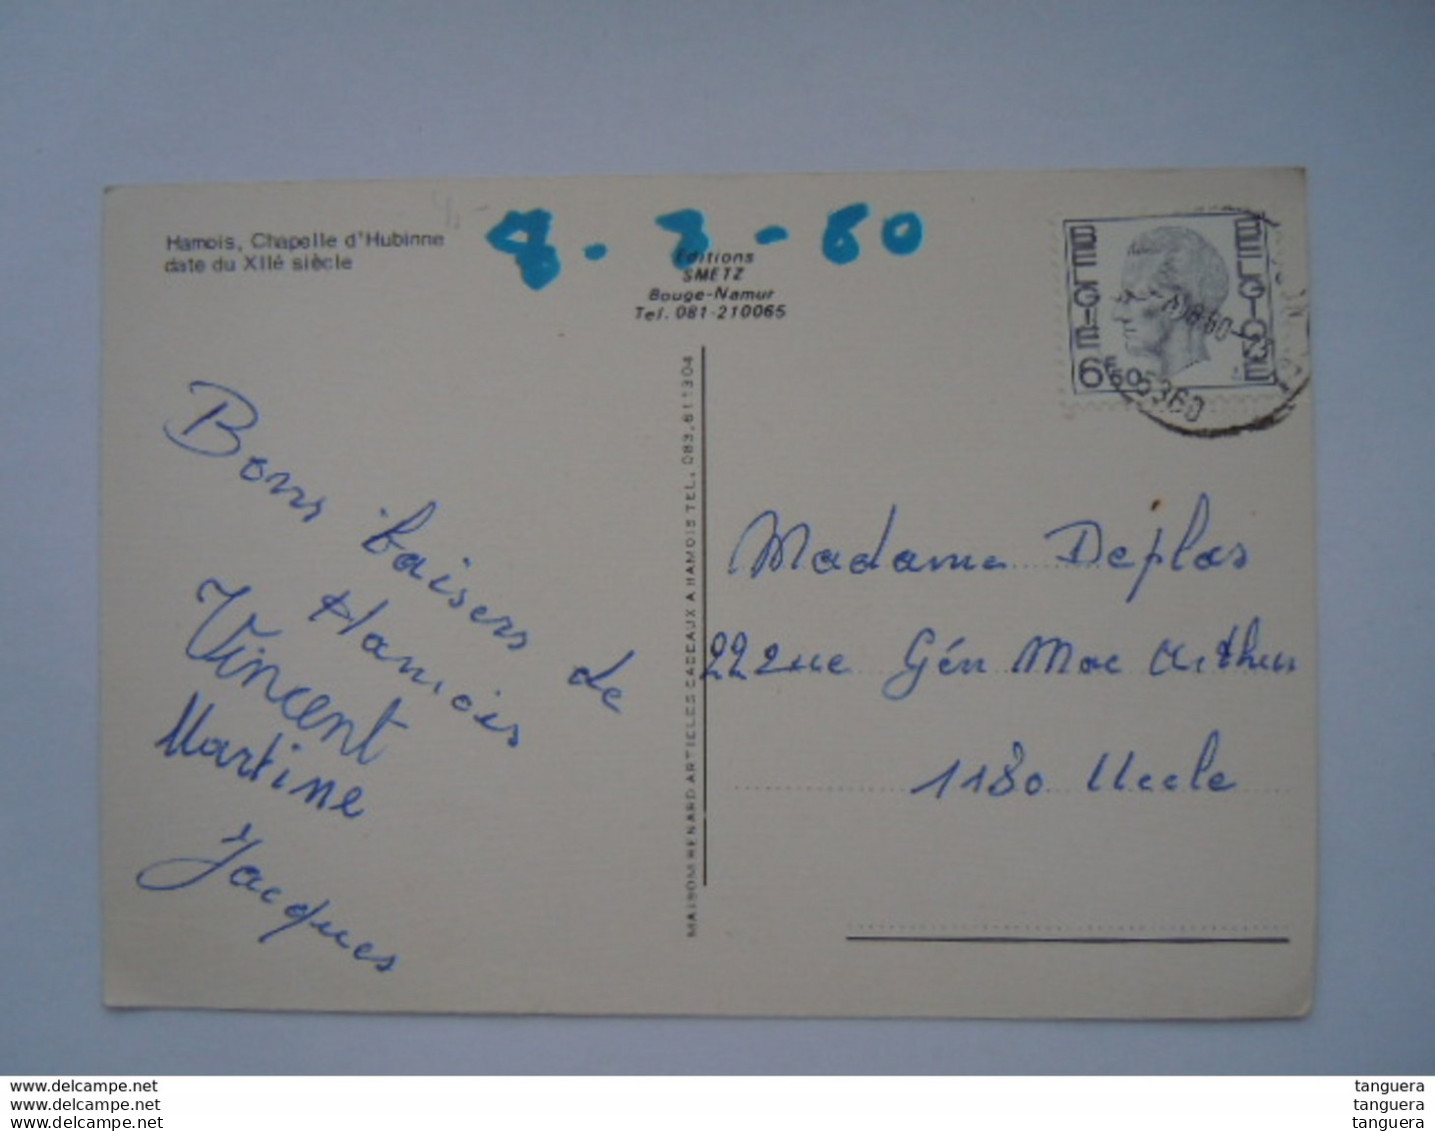 Hamois, Chapelle d'Hubinne
date du XIIé siècle
8-8-80
Editions
SMETZ
Bouge-Namur
Tel. 081-210065
BELGIE
BELGIQUE
6F50
5360
MAISON RENARD ARTICLES CADEAUX A HAMOIS TEL. 083.611304
Bons baisers de
Hamois
Vincent
Martine
Jacques
Madame Deplas
22 rue Gén Mac Arthur
1180 Uccle
www.delcampe.net
www.delcampe.net
www.delcampe.net
tanguera
tanguera
tanguera